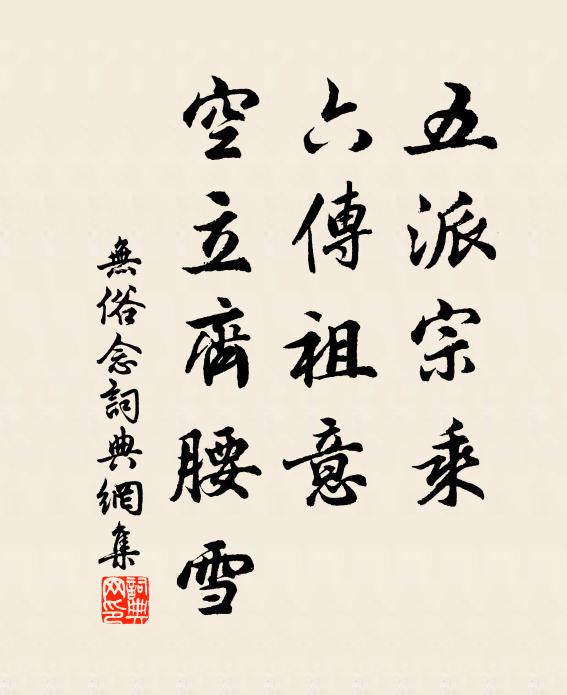 五派宗乘
六傳祖意
空立齊腰雪
無俗念詞典網集
詞典网印